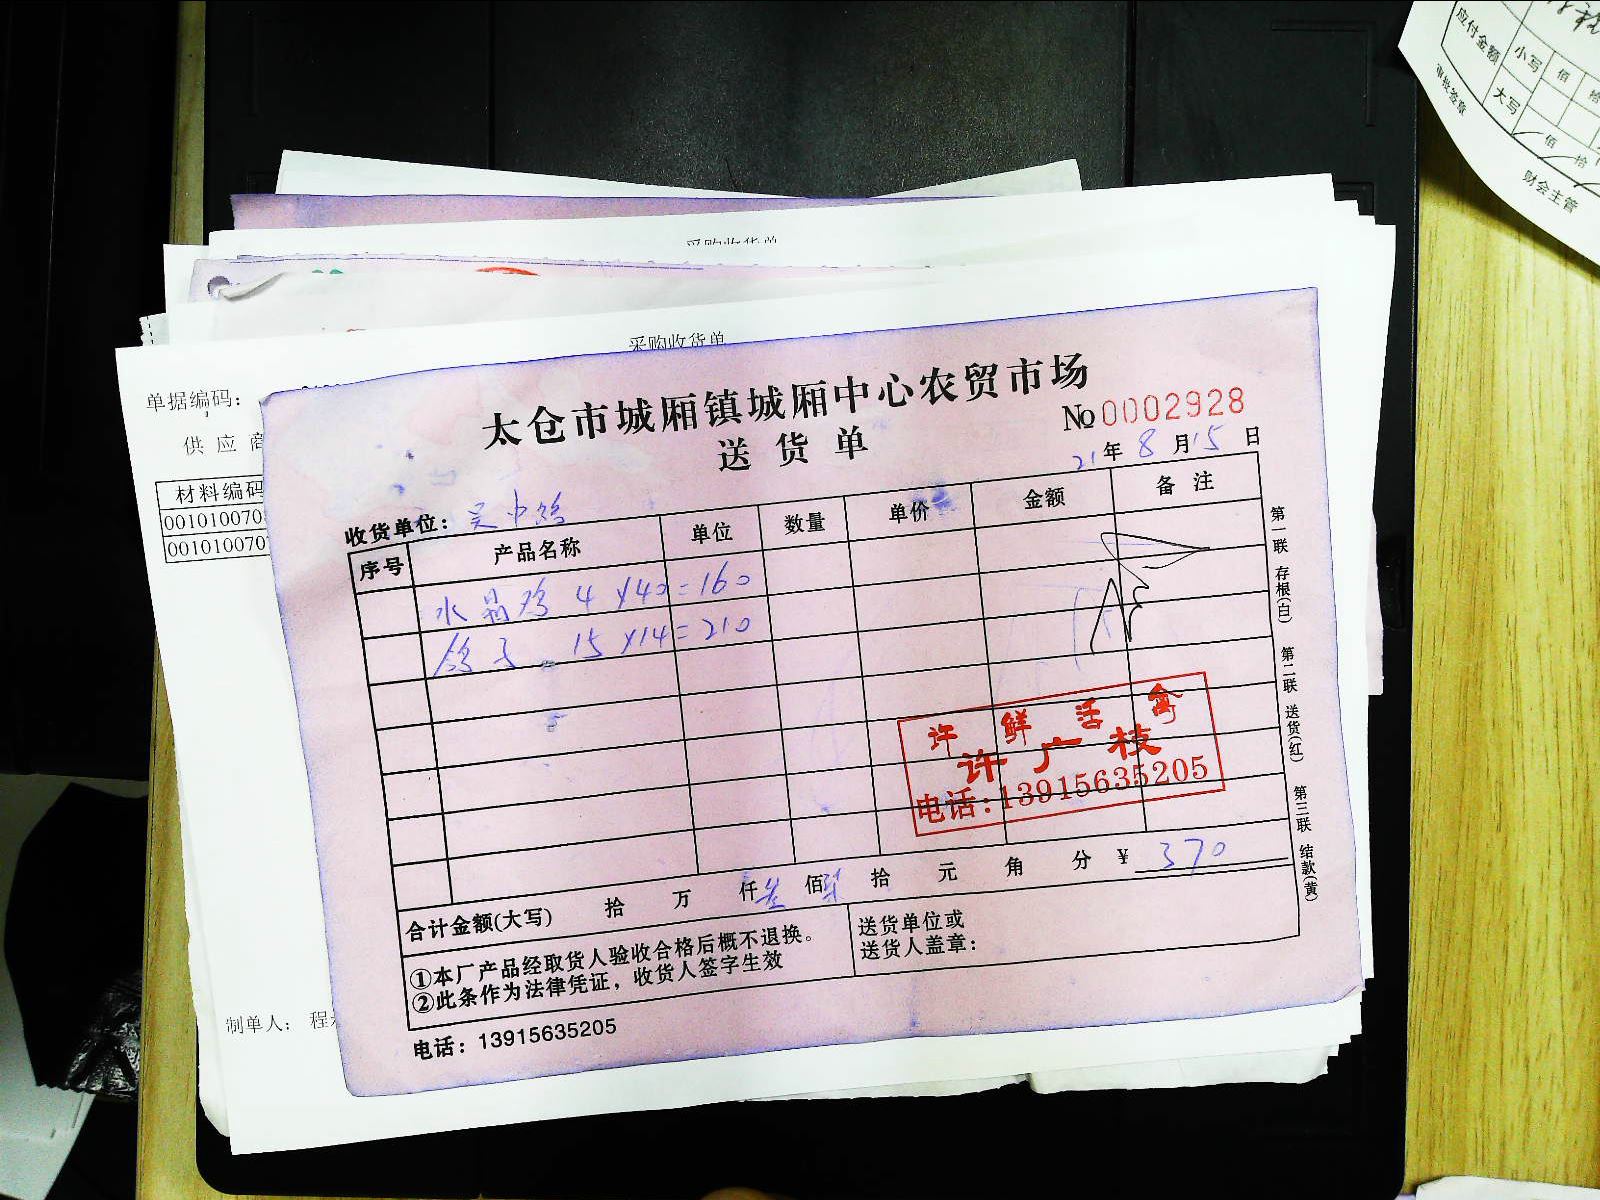 应付金额
小写
佰
拾
大写
佰 拾
审批签章
财会主管
采购收货单
采购收货单
单据编码:
供应商
材料编码
00101007
00101007
制单人: 程
太仓市城厢镇城厢中心农贸市场
送货单
№0002928
21年8月15日
收货单位:
序号 产品名称 单位 数量 单价 金额 备注
水晶鸡 4×40=160
鸽子 15×14=210
许鲜活禽
许广枝
电话:13915635205
合计金额(大写) 拾 万 仟叁佰柒拾 元 角 分 ¥370
①本厂产品经取货人验收合格后概不退换。
②此条作为法律凭证，收货人签字生效
送货单位或
送货人盖章:
电话: 13915635205
第一联 存根(白)
第二联 送货(红)
第三联 结款(黄)